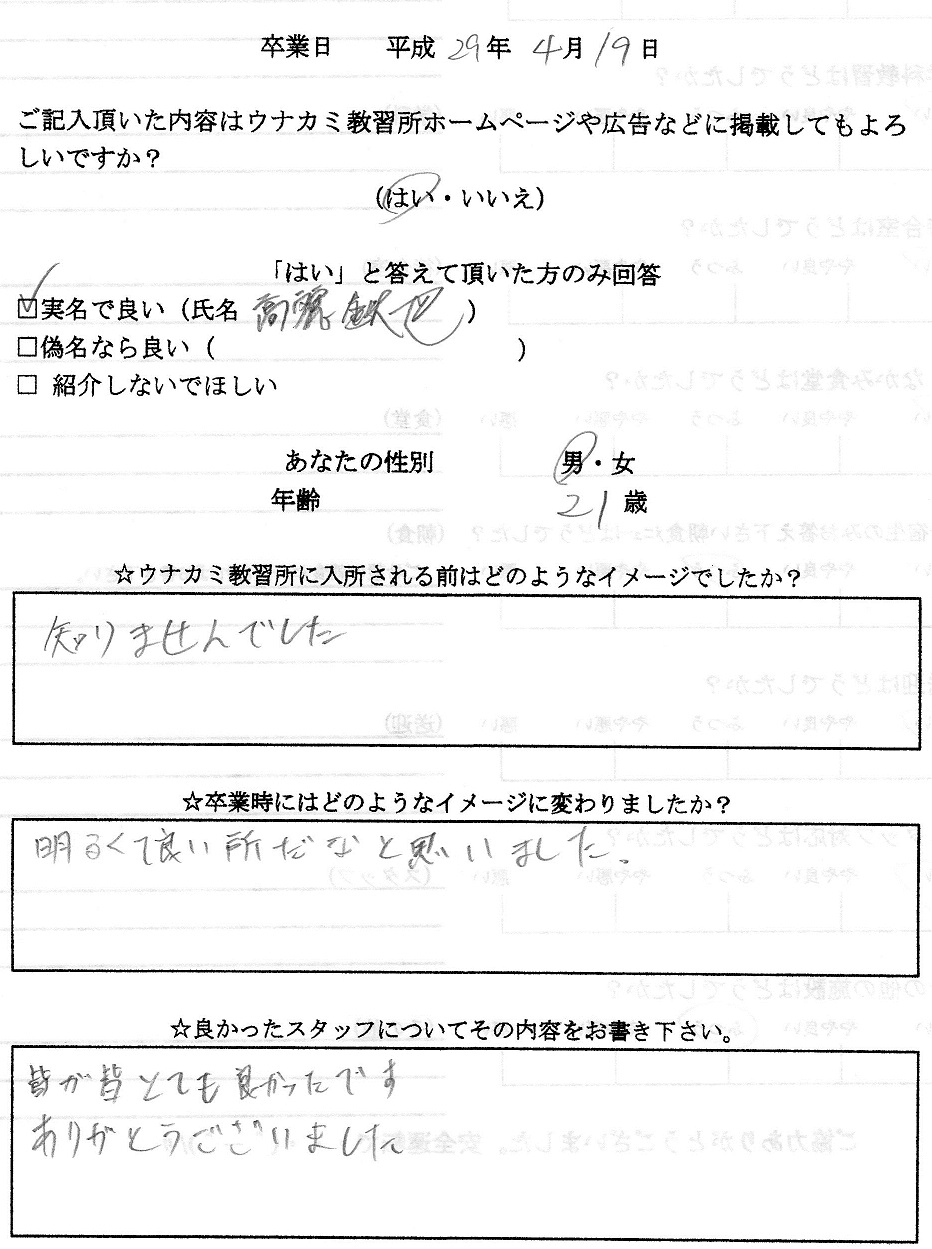 卒業日 平成 29年 4月19日
ご記入頂いた内容はウナカミ教習所ホームページや広告などに掲載してもよろ
しいですか?
(はい・いいえ)
「はい」と答えて頂いた方のみ回答
☑実名で良い(氏名 高麗 )
□偽名なら良い( )
□ 紹介しないでほしい
あなたの性別 男・女
年齢 21歳
☆ウナカミ教習所に入所される前はどのようなイメージでしたか?
知りませんでした
☆卒業時にはどのようなイメージに変わりましたか?
明るくて良い所だなと思いました.
☆良かったスタッフについてその内容をお書き下さい。
皆が皆とても良かったです
ありがとうございました